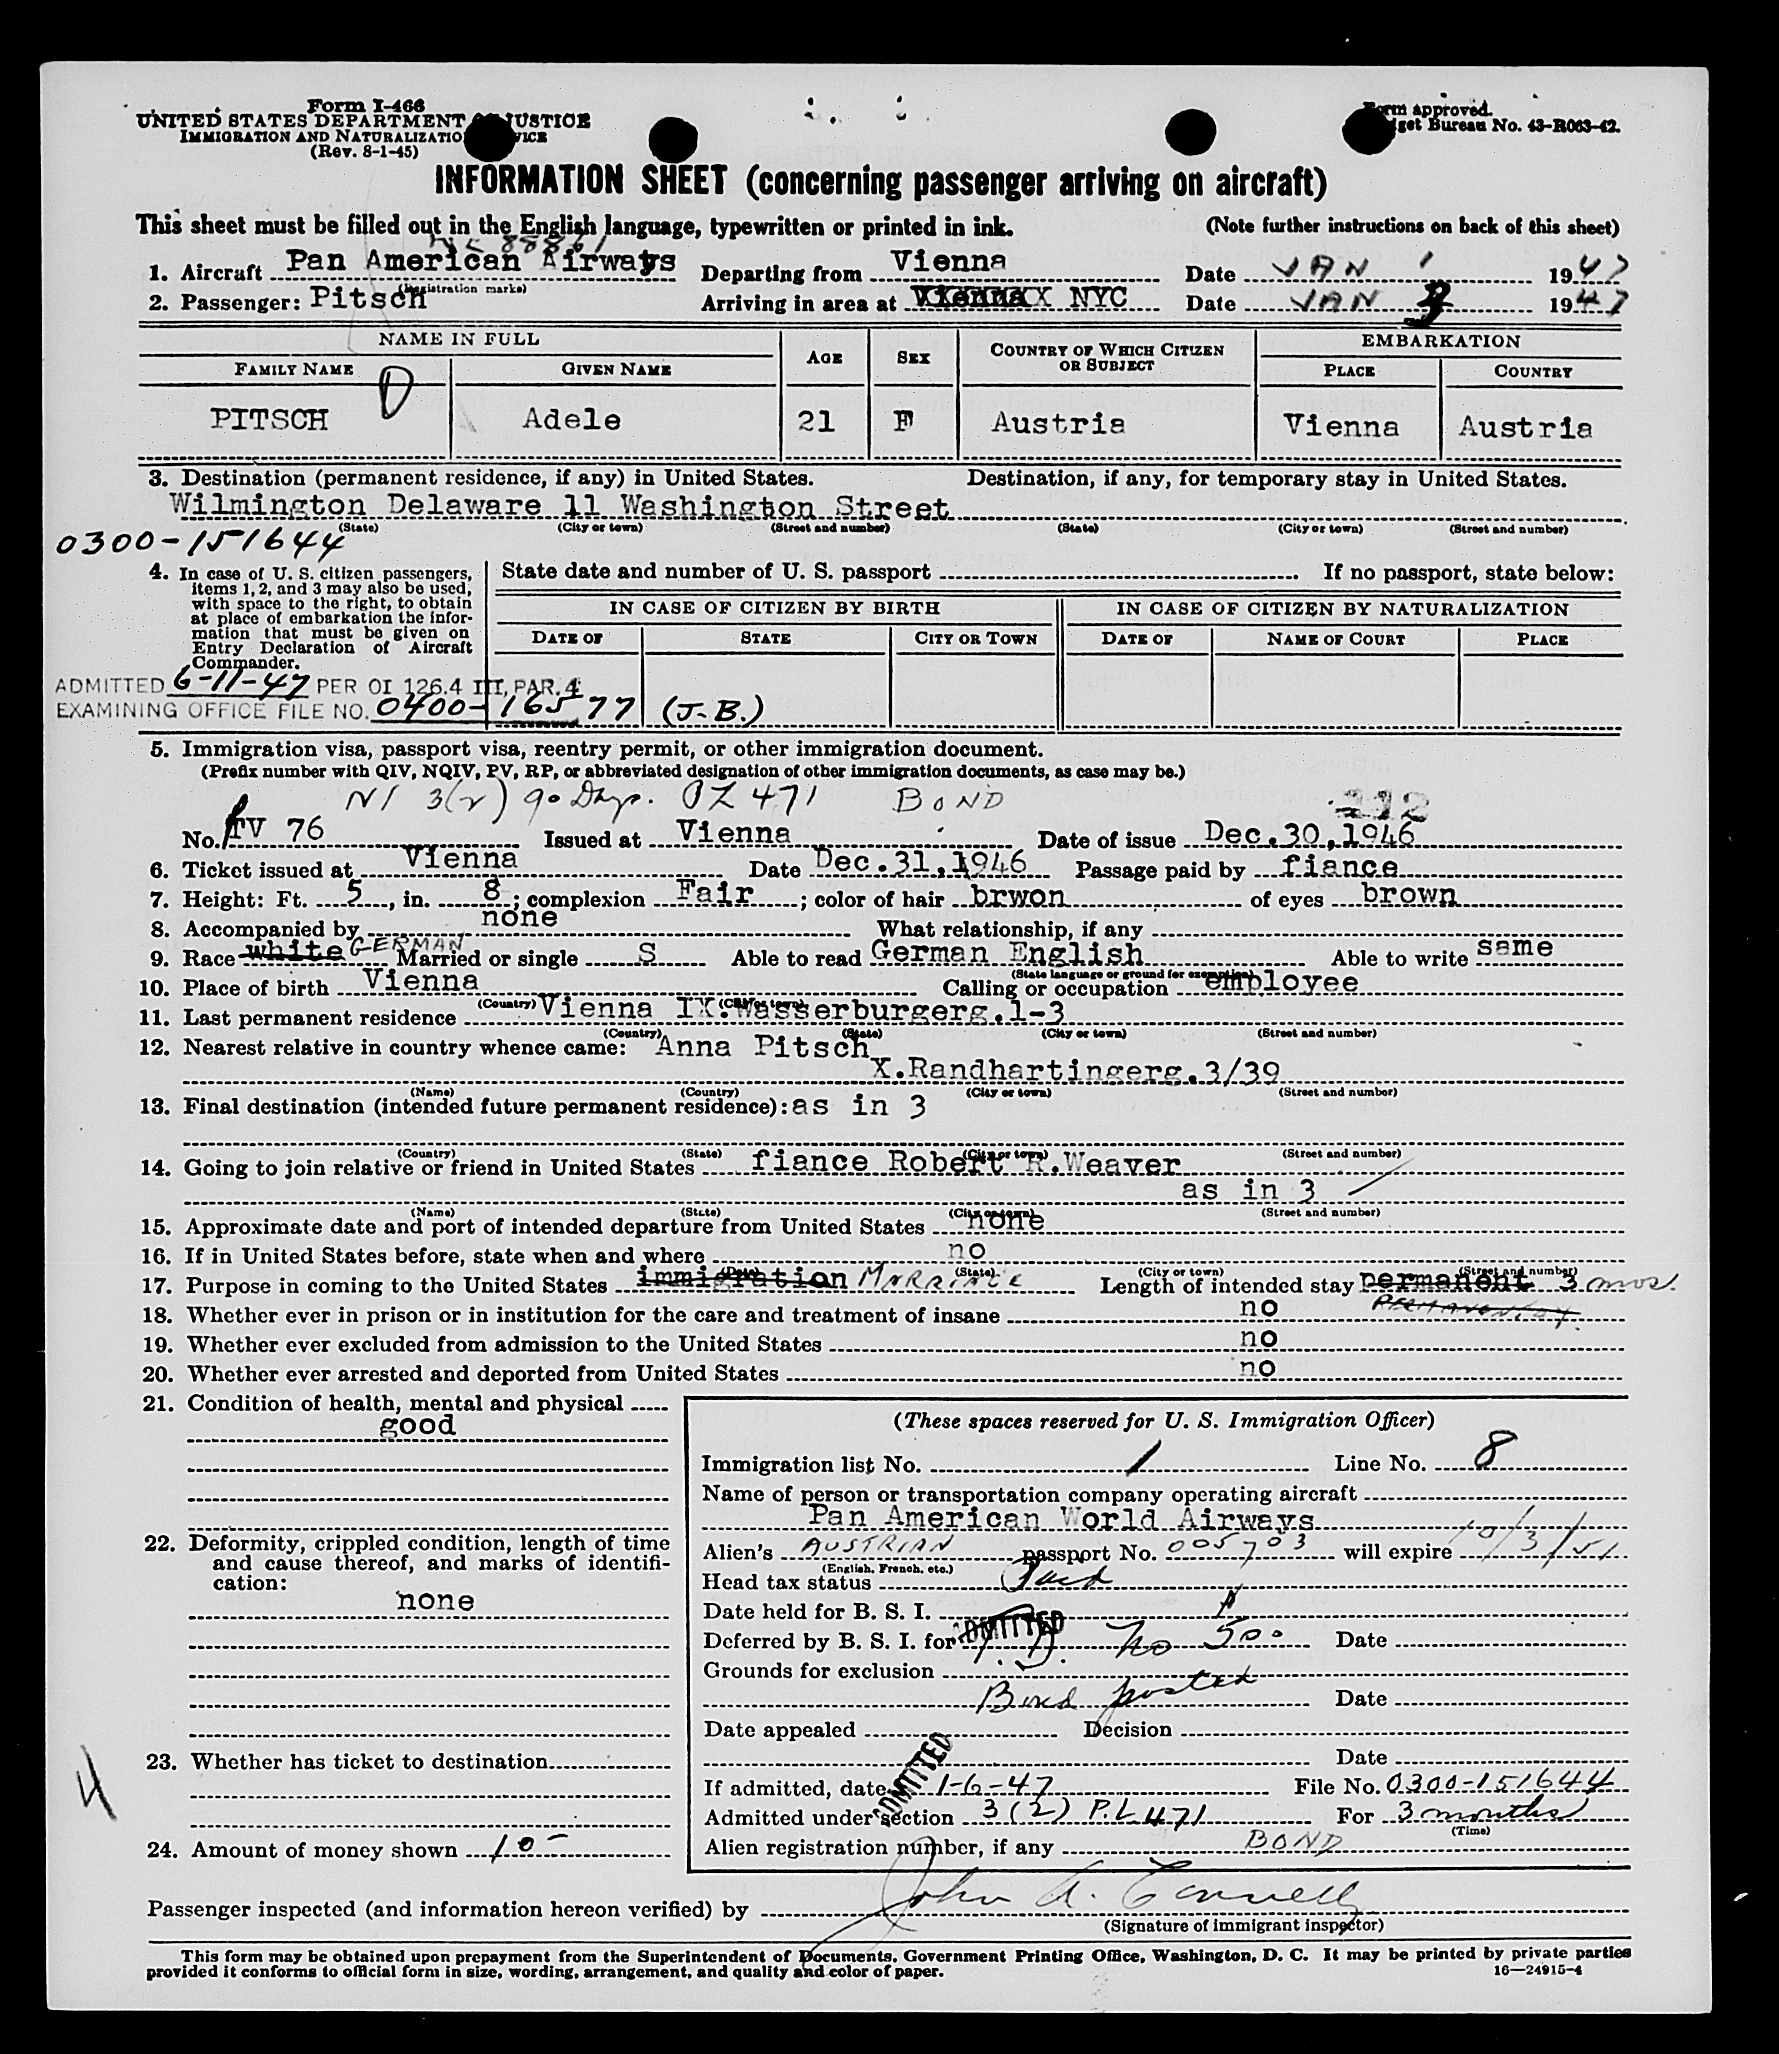 Form I-466
UNITED STATES DEPARTMENT JUSTICE
IMMIGRATION AND NATURALIZATIO VICE
(Rev. 8-1-45)
Form approved.
get Bureau No. 43-R063-42.
INFORMATION SHEET (concerning passenger arriving on aircraft)
This sheet must be filled out in the English language, typewritten or printed in ink. (Note further instructions on back of this sheet)
88861
1. Aircraft Pan American Airways Departing from Vienna Date JAN 1 1947
(Registration marks)
2. Passenger: Pitsch Arriving in area at Vienna X NYC Date JAN 1947
NAME IN FULL AGE SEX COUNTRY OF WHICH CITIZEN OR SUBJECT EMBARKATION
FAMILY NAME GIVEN NAME PLACE COUNTRY
D
PITSCH Adele 21 F Austria Vienna Austria
3. Destination (permanent residence, if any) in United States. Destination, if any, for temporary stay in United States.
Wilmington Delaware 11 Washington Street
(State) (City or town) (Street and number) (State) (City or town) (Street and number)
0300-151644
4. In case of U. S. citizen passengers, items 1, 2, and 3 may also be used, with space to the right, to obtain at place of embarkation the information that must be given on Entry Declaration of Aircraft Commander.
State date and number of U. S. passport If no passport, state below:
IN CASE OF CITIZEN BY BIRTH IN CASE OF CITIZEN BY NATURALIZATION
DATE OF STATE CITY OR TOWN DATE OF NAME OF COURT PLACE
ADMITTED 6-11-47 PER OI 126.4 III, PAR. 4
EXAMINING OFFICE FILE NO. 0400-16577 (J.B.)
5. Immigration visa, passport visa, reentry permit, or other immigration document.
(Prefix number with QIV, NQIV, PV, RP, or abbreviated designation of other immigration documents, as case may be.)
NI 3(2) 90 Days. PL 471 BOND 312
No. TV 76 Issued at Vienna Date of issue Dec.30,1946
6. Ticket issued at Vienna Date Dec.31,1946 Passage paid by fiance
7. Height: Ft. 5, in. 8; complexion Fair; color of hair brwon of eyes brown
8. Accompanied by none What relationship, if any
9. Race white GERMAN Married or single S Able to read German English Able to write same
(State language or ground for exemption)
10. Place of birth Vienna Calling or occupation employee
(Country) (City or town)
11. Last permanent residence Vienna IX.Wasserburgerg.1-3
(Country) (State) (City or town) (Street and number)
12. Nearest relative in country whence came: Anna Pitsch
X.Randhartingerg.3/39
(Name) (Country) (City or town) (Street and number)
13. Final destination (intended future permanent residence): as in 3
(Country) (State) (City or town) (Street and number)
14. Going to join relative or friend in United States fiance Robert R.Weaver
as in 3
(Name) (State) (City or town) (Street and number)
15. Approximate date and port of intended departure from United States none
16. If in United States before, state when and where no
(Date) (State) (City or town) (Street and number)
17. Purpose in coming to the United States immigration MARRIAGE Length of intended stay permanent 3 mos.
PERMANENTLY
18. Whether ever in prison or in institution for the care and treatment of insane no
19. Whether ever excluded from admission to the United States no
20. Whether ever arrested and deported from United States no
21. Condition of health, mental and physical
good
(These spaces reserved for U. S. Immigration Officer)
Immigration list No. 1 Line No. 8
Name of person or transportation company operating aircraft
Pan American World Airways
22. Deformity, crippled condition, length of time and cause thereof, and marks of identification:
none
Alien's AUSTRIAN passport No. 005703 will expire 10/3/51
(English, French, etc.)
Head tax status Paid
Date held for B. S. I.
Deferred by B. S. I. for ADMITTED 500 Date
Grounds for exclusion
Bond posted Date
Date appealed Decision
Date
23. Whether has ticket to destination
If admitted, date ADMITTED 1-6-47 File No. 0300-151644
Admitted under section 3(2) P.L 471 For 3 months
(Time)
4
24. Amount of money shown 10-
Alien registration number, if any BOND
Passenger inspected (and information hereon verified) by John A. Connell
(Signature of immigrant inspector)
This form may be obtained upon prepayment from the Superintendent of Documents, Government Printing Office, Washington, D. C. It may be printed by private parties
provided it conforms to official form in size, wording, arrangement, and quality and color of paper. 16—24915-4